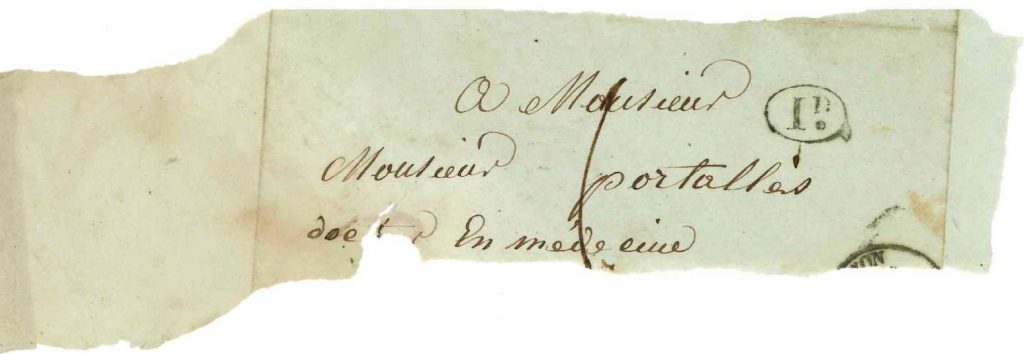 A Monsieur
1D.
Monsieur portallès
doctr En médecine
ION